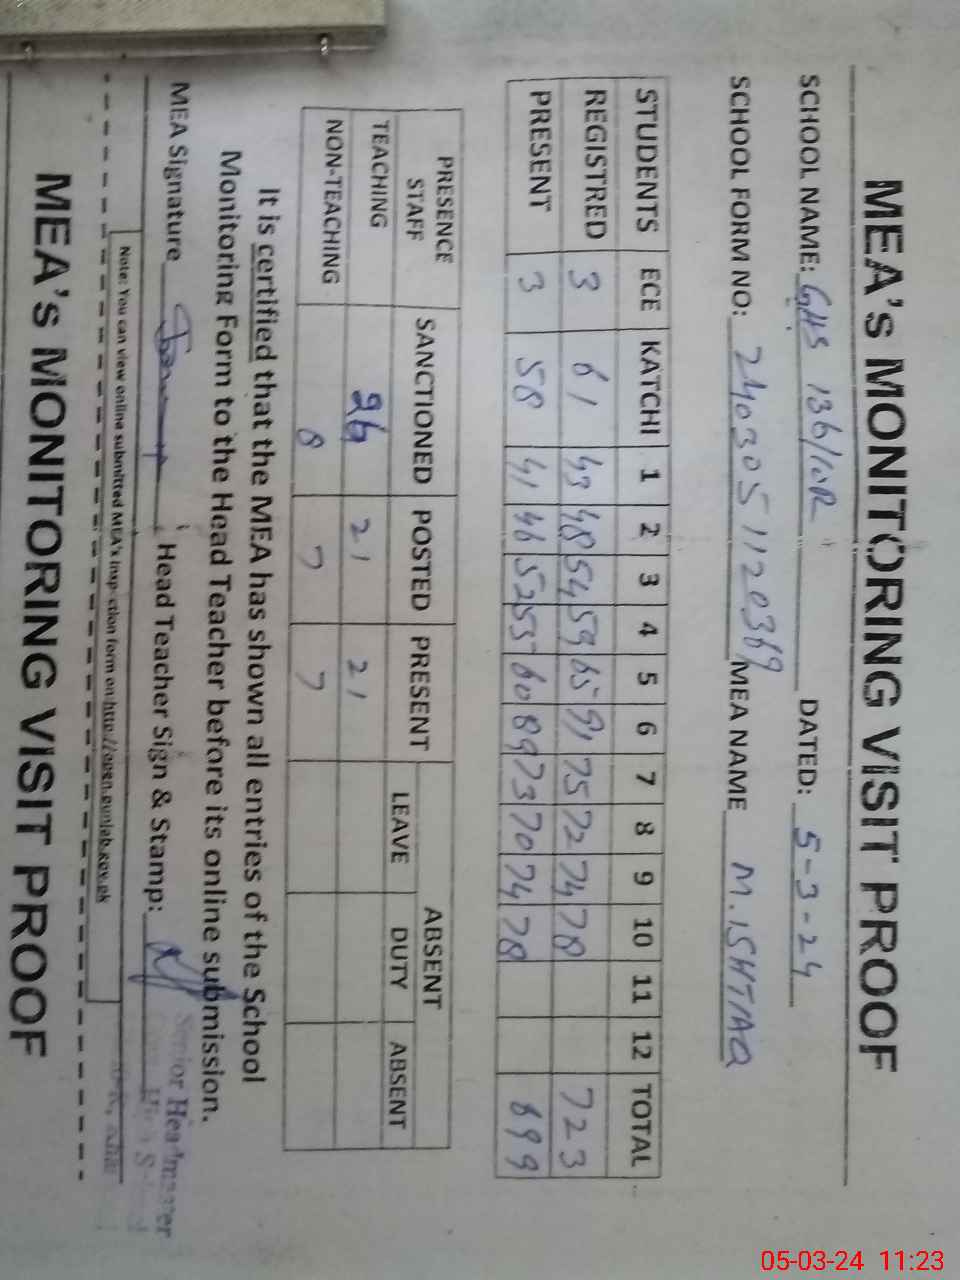 MEA's MONITORING VISIT PROOF
SCHOOL NAME: GHS 136/10R DATED: 5-3-24
SCHOOL FORM NO: 24030511120369 MEA NAME M. ISHTIAQ
STUDENTS ECE KATCHI 1 2 3 4 5 6 7 8 9 10 11 12 TOTAL
REGISTRED 3 61 43 48 54 59 65 91 75 72 74 78 723
PRESENT 3 58 41 46 52 55 60 89 73 70 74 78 699
PRESENCE STAFF SANCTIONED POSTED PRESENT ABSENT
LEAVE DUTY ABSENT
TEACHING 26 21 21
NON-TEACHING 8 7 7
It is certified that the MEA has shown all entries of the School
Monitoring Form to the Head Teacher before its online submission.
MEA Signature Head Teacher Sign & Stamp:
Senior Headmaster
Note: You can view online submitted MEA's inspection form on http://open.punjab.gov.pk
MEA's MONITORING VISIT PROOF
05-03-24 11:23